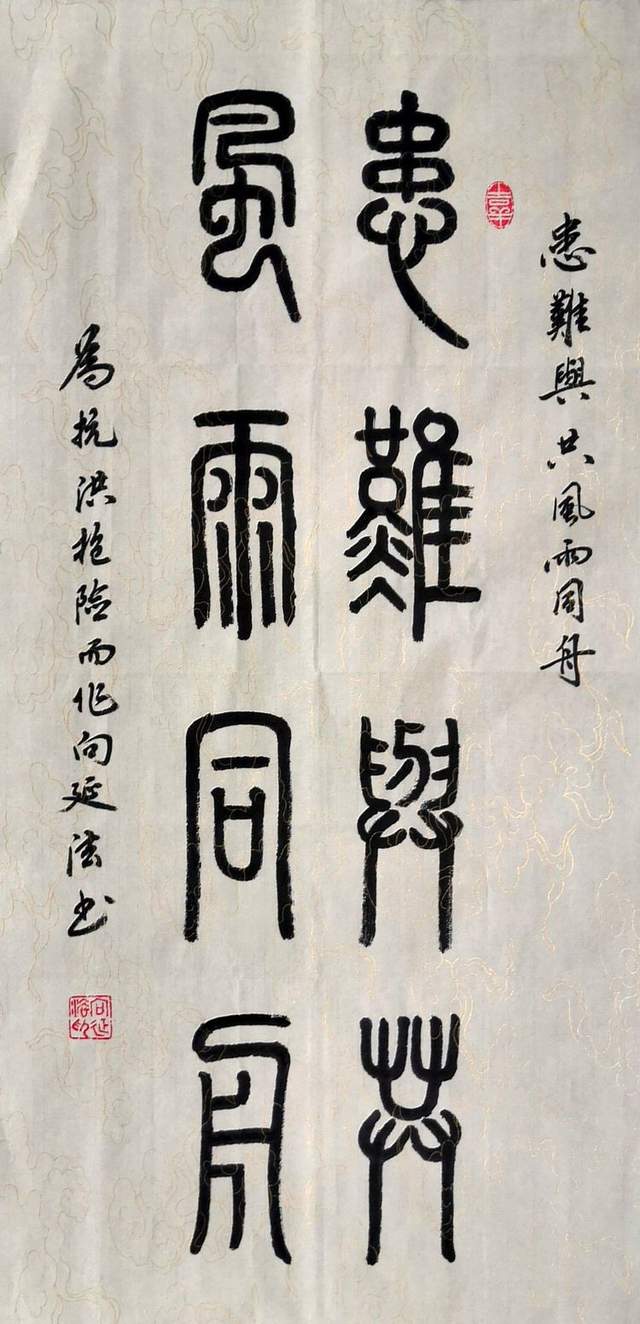 患難與共風雨同舟
患難與共
風雨同舟
為抗洪搶險而作向延法書